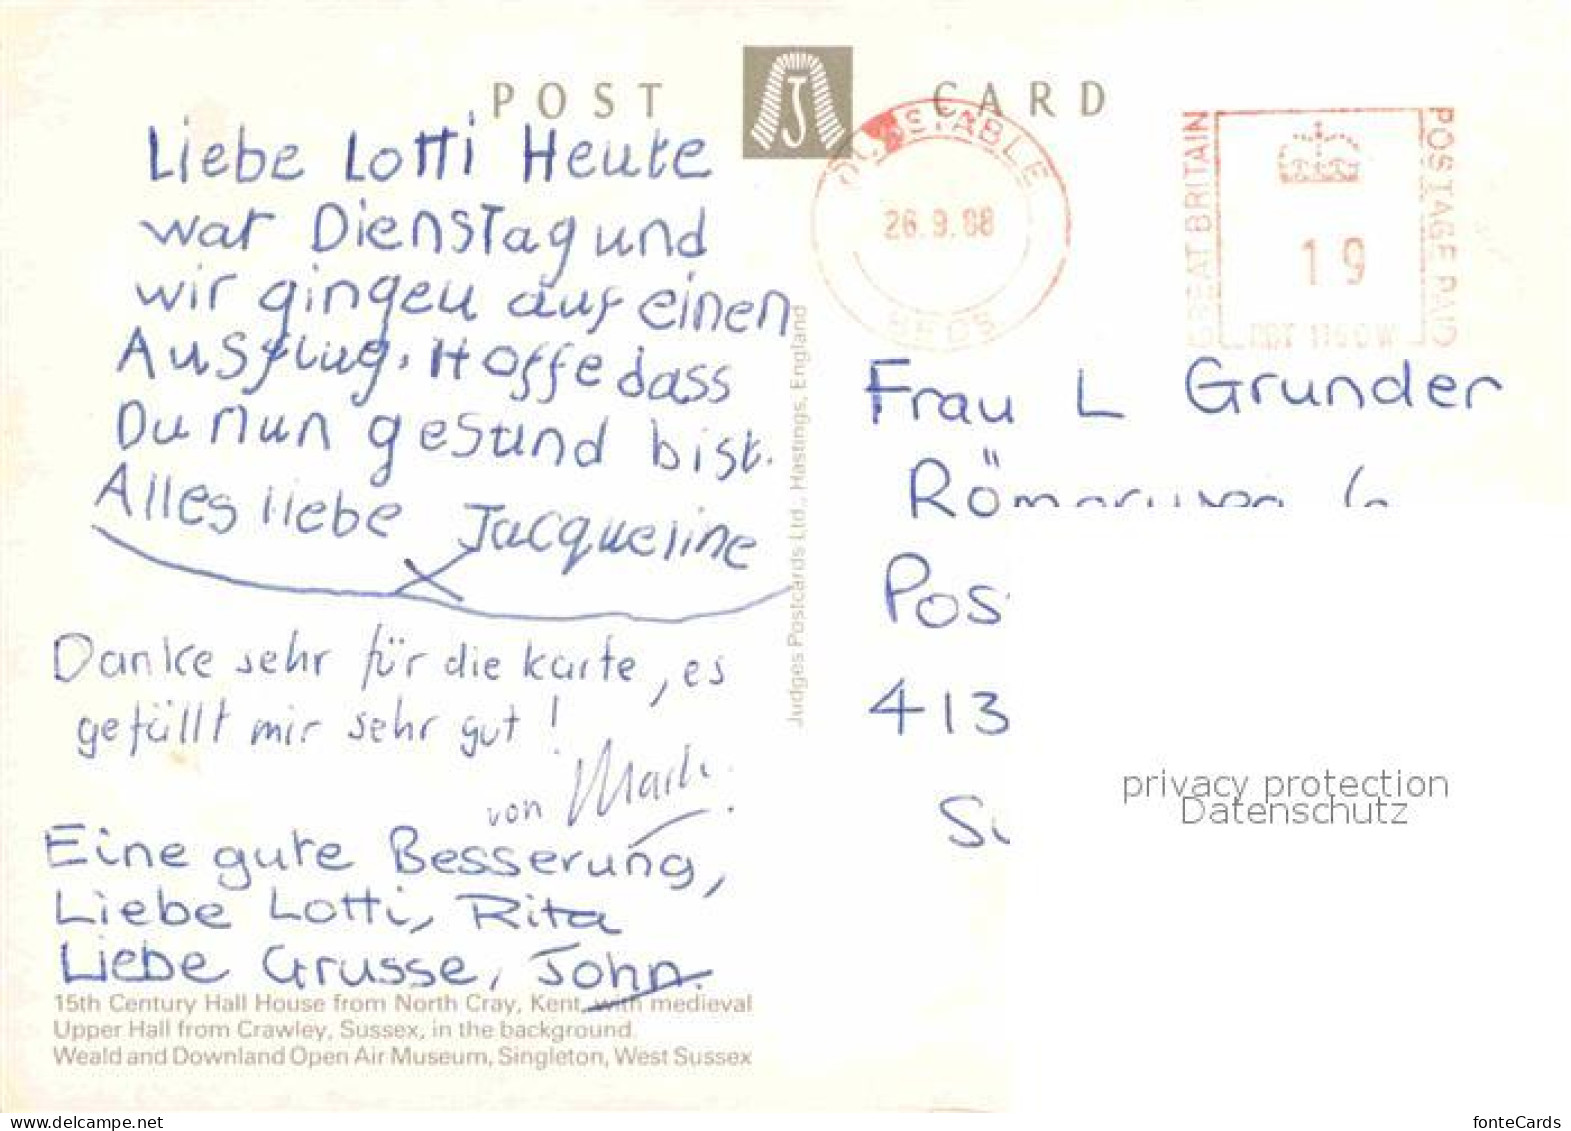 POST CARD
Liebe Lotti Heute
war Dienstag und
wir gingen auf einen
Ausflug. Hoffe dass
Du nun gesund bist.
Alles liebe Jacqueline
Danke sehr für die karte, es
gefällt mir sehr gut!
von
Eine gute Besserung,
Liebe Lotti, Rita
Liebe Grusse, John.
15th Century Hall House from North Cray, Kent, with medieval
Upper Hall from Crawley, Sussex, in the background.
Weald and Downland Open Air Museum, Singleton, West Sussex
Judges Postcards Ltd., Hastings, England
DUNSTABLE
26.9.88
BEDS
GREAT BRITAIN
19
POSTAGE PAID
Frau L Grunder
Pos
413
privacy protection
Datenschutz
www.delcampe.net
fonteCards